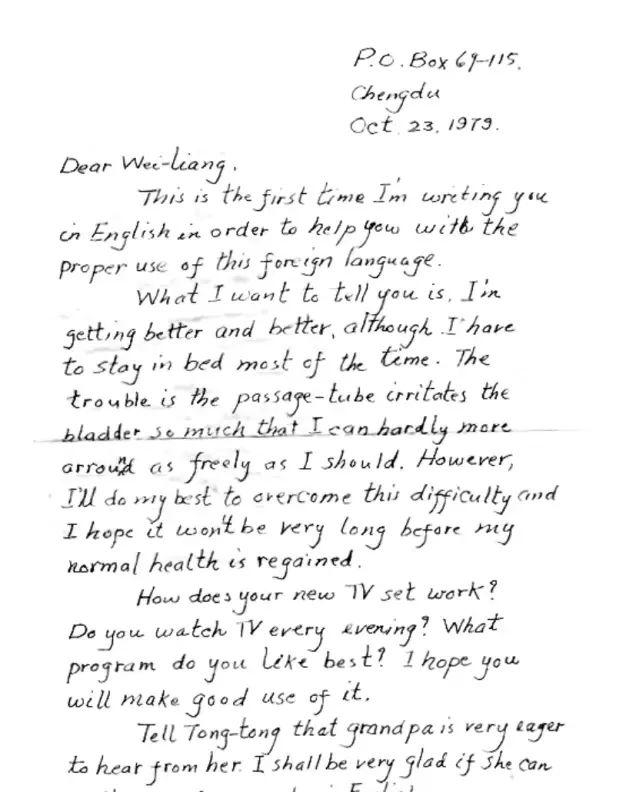 P.O. Box 69-115.
Chengdu
Oct. 23, 1979.
Dear Wei-liang,
This is the first time I'm writing you
in English in order to help you with the
proper use of this foreign language.
What I want to tell you is, I'm
getting better and better, although I have
to stay in bed most of the time. The
trouble is the passage-tube irritates the
bladder so much that I can hardly more
arround as freely as I should. However,
I'll do my best to overcome this difficulty and
I hope it won't be very long before my
normal health is regained.
How does your new TV set work?
Do you watch TV every evening? What
program do you like best? I hope you
will make good use of it.
Tell Tong-tong that grandpa is very eager
to hear from her. I shall be very glad if she can